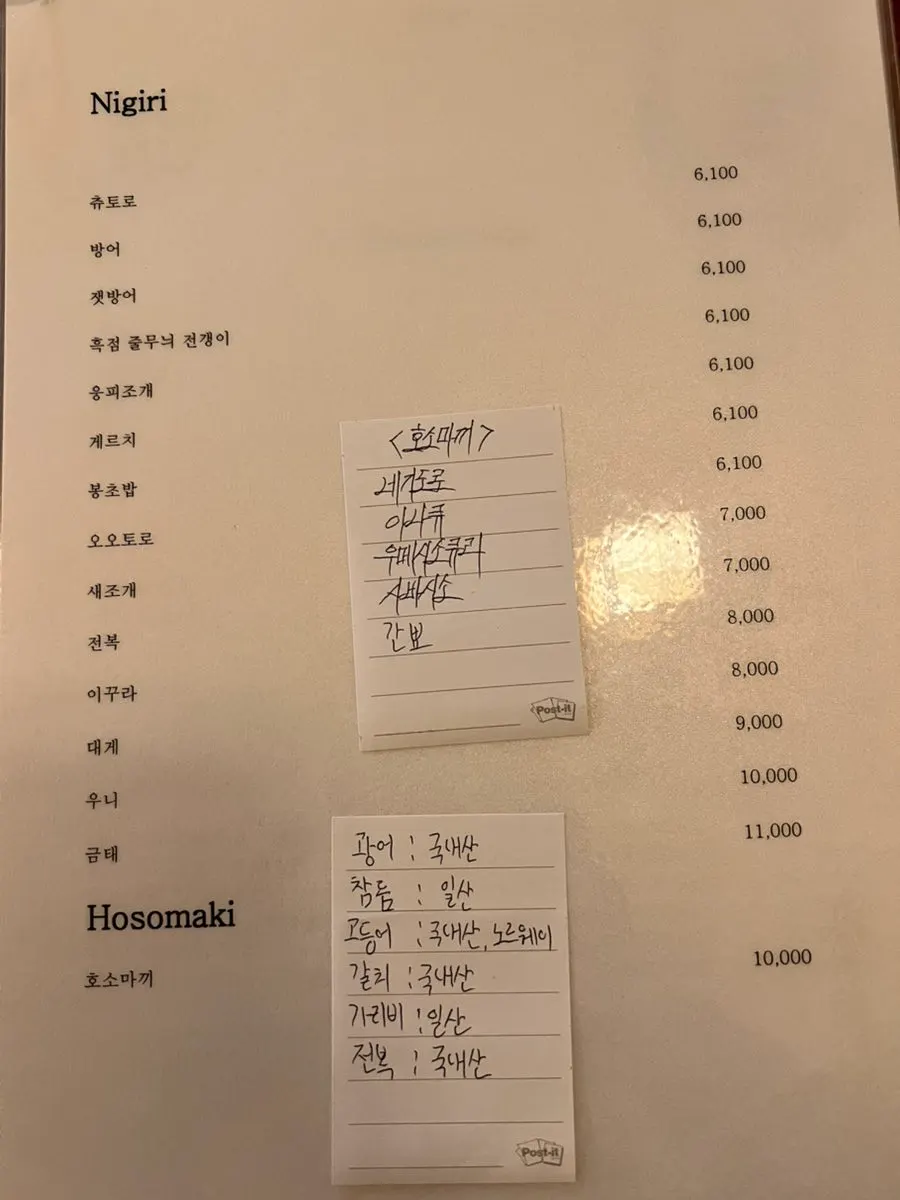 Nigiri
츄토로 6,100
방어 6,100
잿방어 6,100
흑점 줄무늬 전갱이 6,100
웅피조개 6,100
게르치 6,100
봉초밥 6,100
오오토로 7,000
새조개 7,000
전복 8,000
이꾸라 8,000
대게 9,000
우니 10,000
금태 11,000
<호소마끼>
네기토로
아나큐
우메시소큐리
사바시소
간뾰
Post-it
광어 : 국내산
참돔 : 일산
고등어 : 국내산, 노르웨이
갈치 : 국내산
가리비 : 일산
전복 : 국내산
Post-it
Hosomaki
호소마끼 10,000